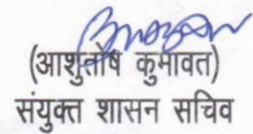 (आशुतोष कुमावत)
संयुक्त शासन सचिव